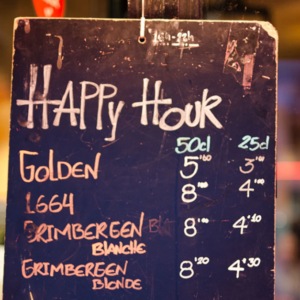 16h-22h
HAPPY HOUR
50cl 25cl
GOLDEN 5'00 3'00
1664 8'00 4'00
GRIMBERGEN BLANCHE 8'00 4'10
GRIMBERGEN BLONDE 8'20 4'30